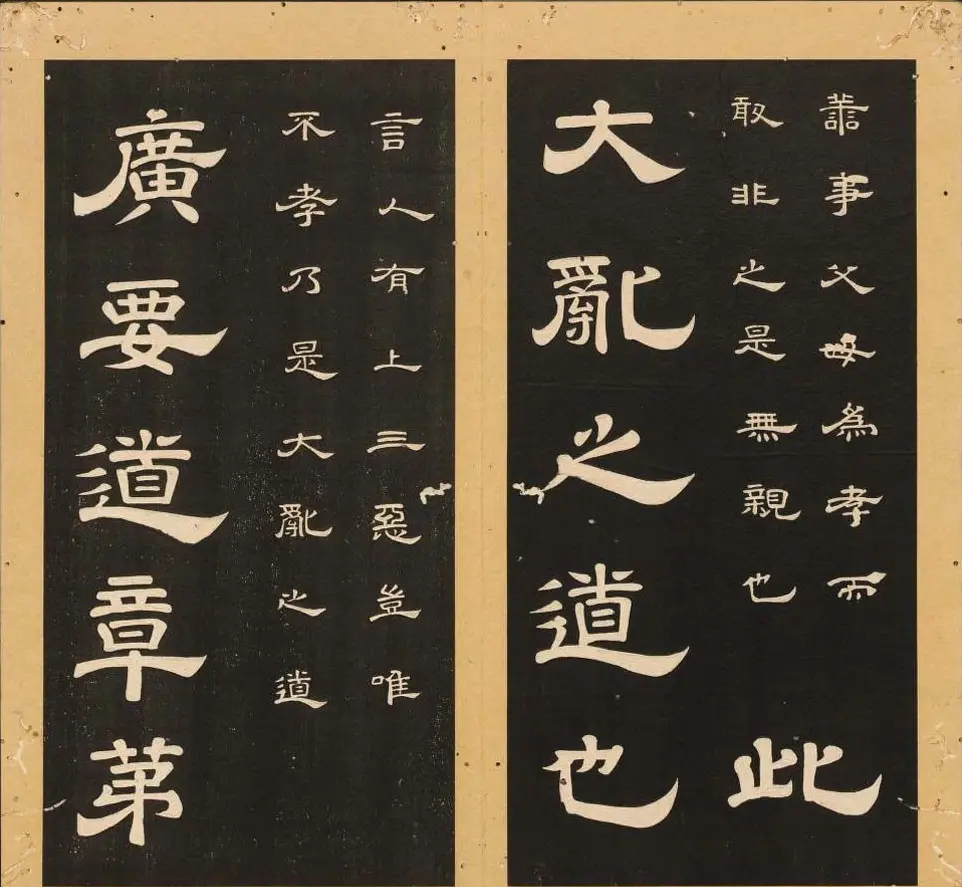 善事父母爲孝而
敢非之是無親也此
大亂之道也
言人有上三惡豈唯
不孝乃是大亂之道
廣要道章第